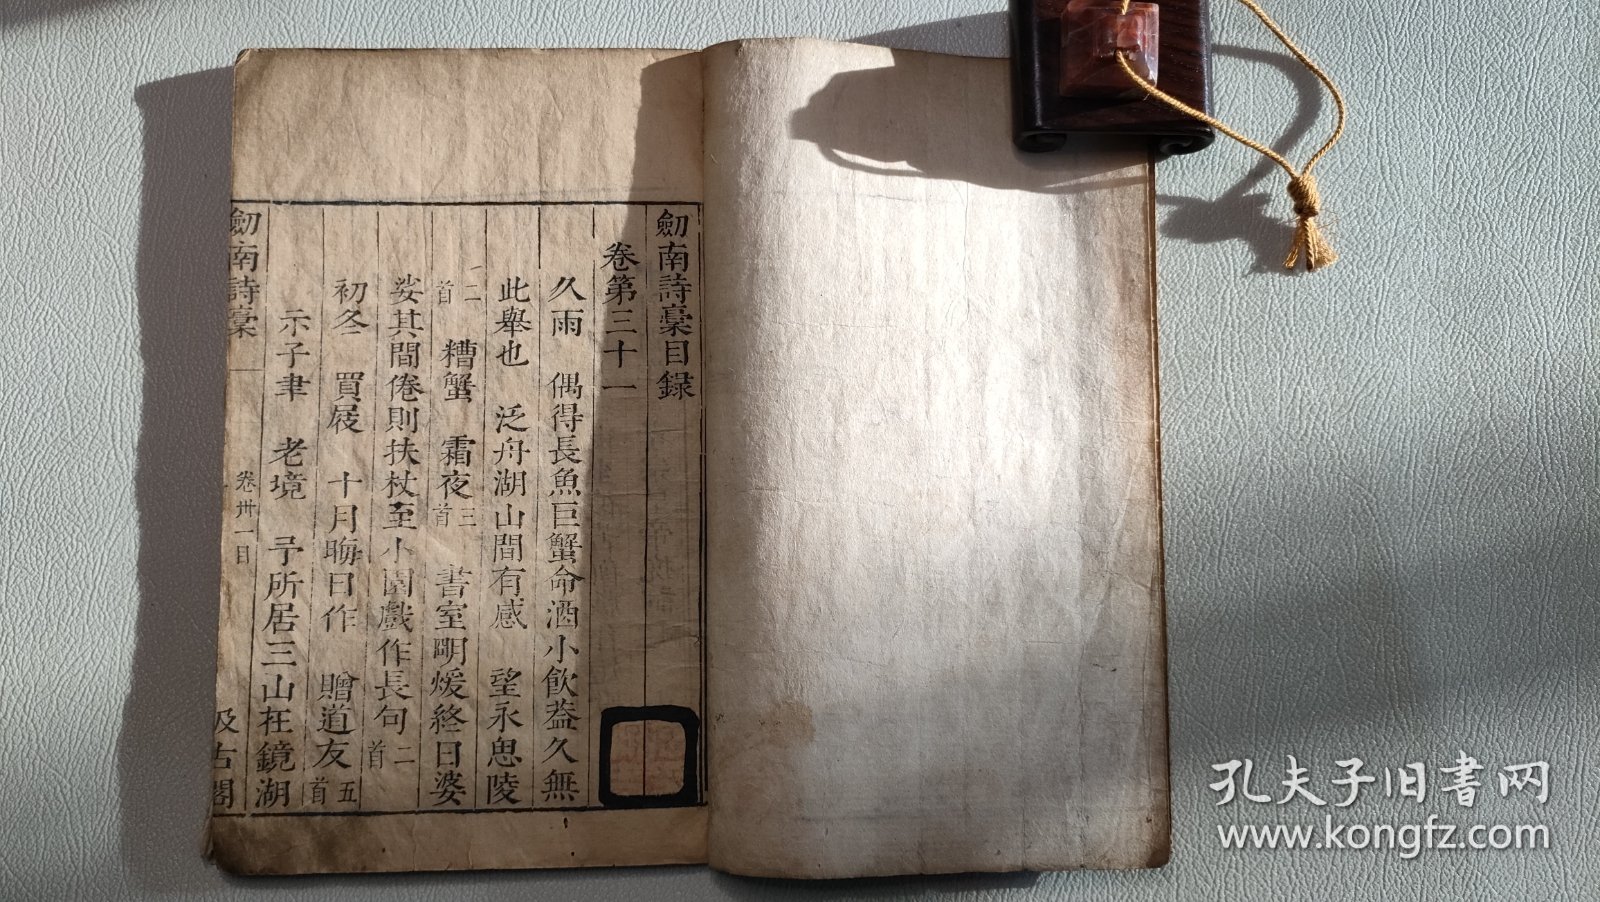 劒南詩稾目録
卷第三十一
久雨　偶得長魚巨蟹命酒小飲葢久無
此舉也　泛舟湖山間有感　望永思陵
二首　糟蟹　霜夜三首　書室明煖終日婆
娑其間倦則扶杖至小園戲作長句二首
初冬　買屐　十月晦日作　贈道友五首
示子聿　老境　予所居三山在鏡湖
劒南詩稾　卷卅一目　汲古閣
孔夫子旧書网
www.kongfz.com